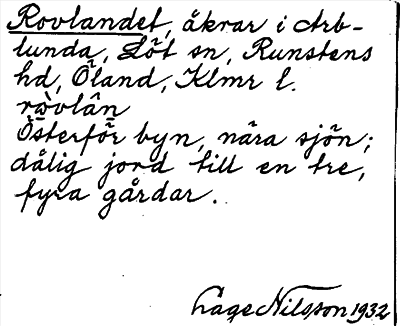 Rovlandet, åkrar i Arb-
lunda, Löt sn, Runstens
hd, Öland, Klmr l.
ròvlân
Österför byn, nära sjön;
dålig jord till en tre,
fyra gårdar.
Låge Nilsson 1932